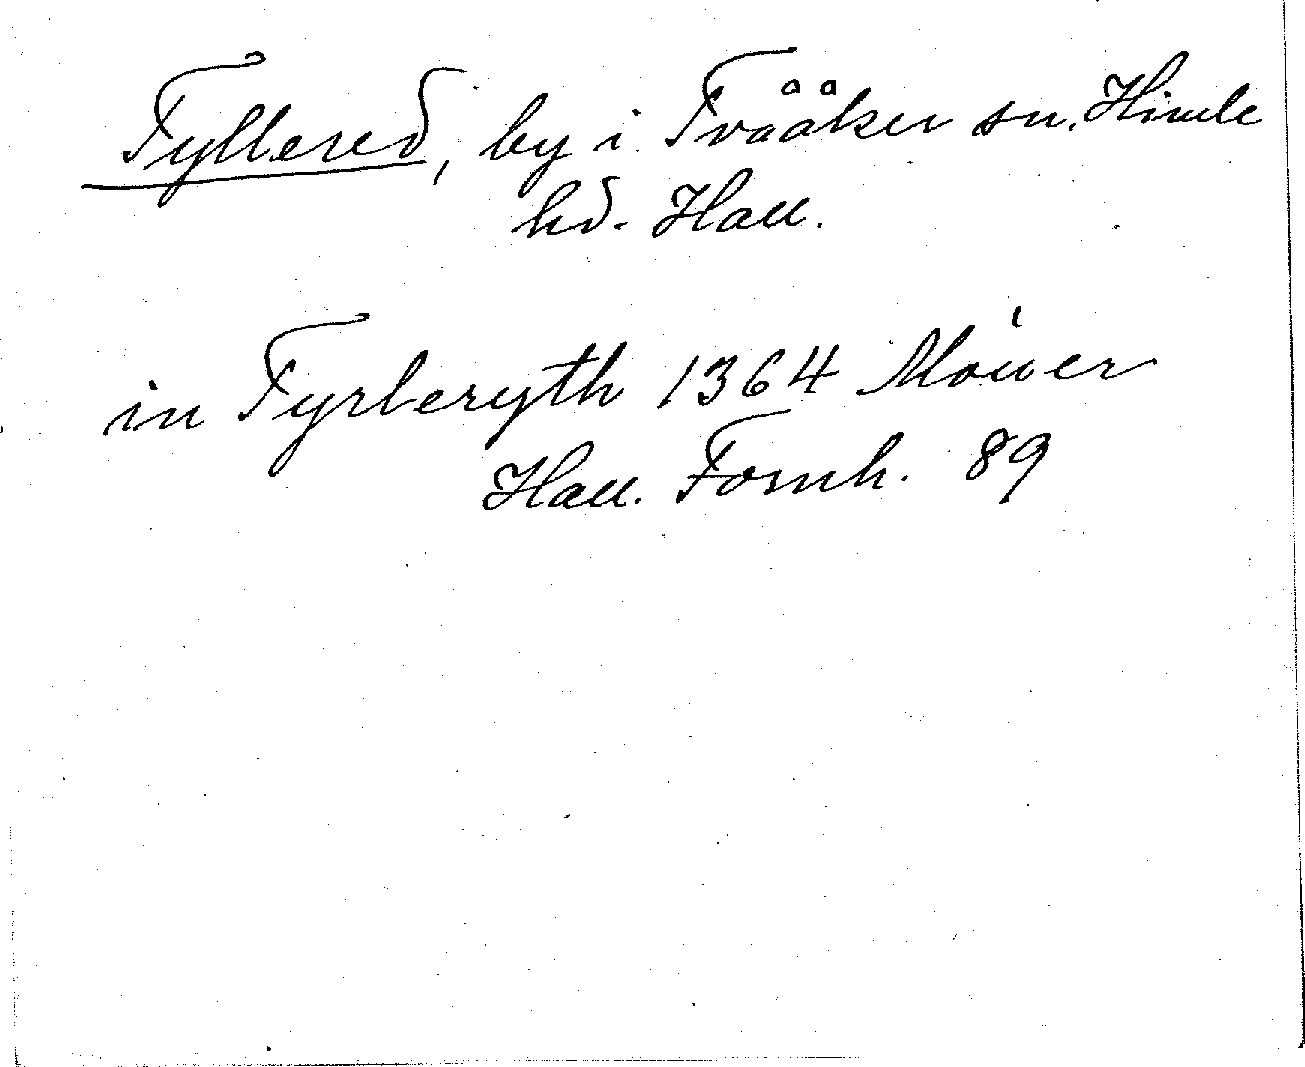 Tyllered, by i Tvååker sn. Himle
hd. Hall.
in Tyrleryth 1364 Möwer
Hall. Fornh. 89